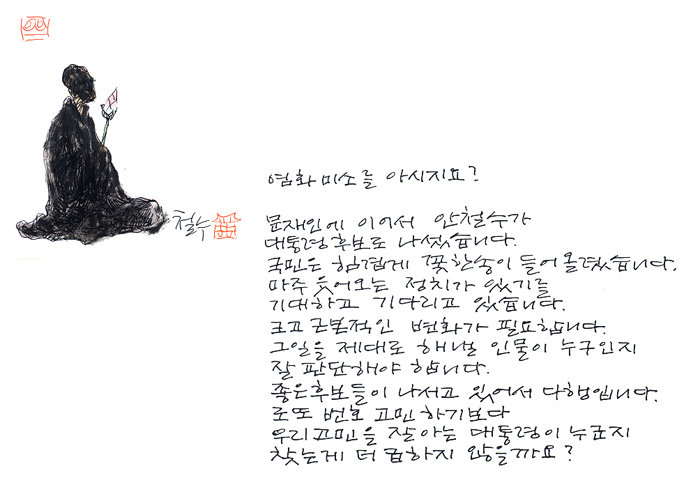 철수
염화미소를 아시지요?
문재인에 이어서 안철수가
대통령후보로 나섰습니다.
국민은 힘겹게 꽃한송이 들어 올렸습니다.
마주 웃어오는 정치가 있기를
기대하고 기다리고 있습니다.
크고 근본적인 변화가 필요합니다.
그일을 제대로 해낼 인물이 누구인지
잘 판단해야 합니다.
좋은후보들이 나서고 있어서 다행입니다.
로또 번호 고민하기보다
우리고민을 잘아는 대통령이 누군지
찾는게 더 급하지 않을까요?